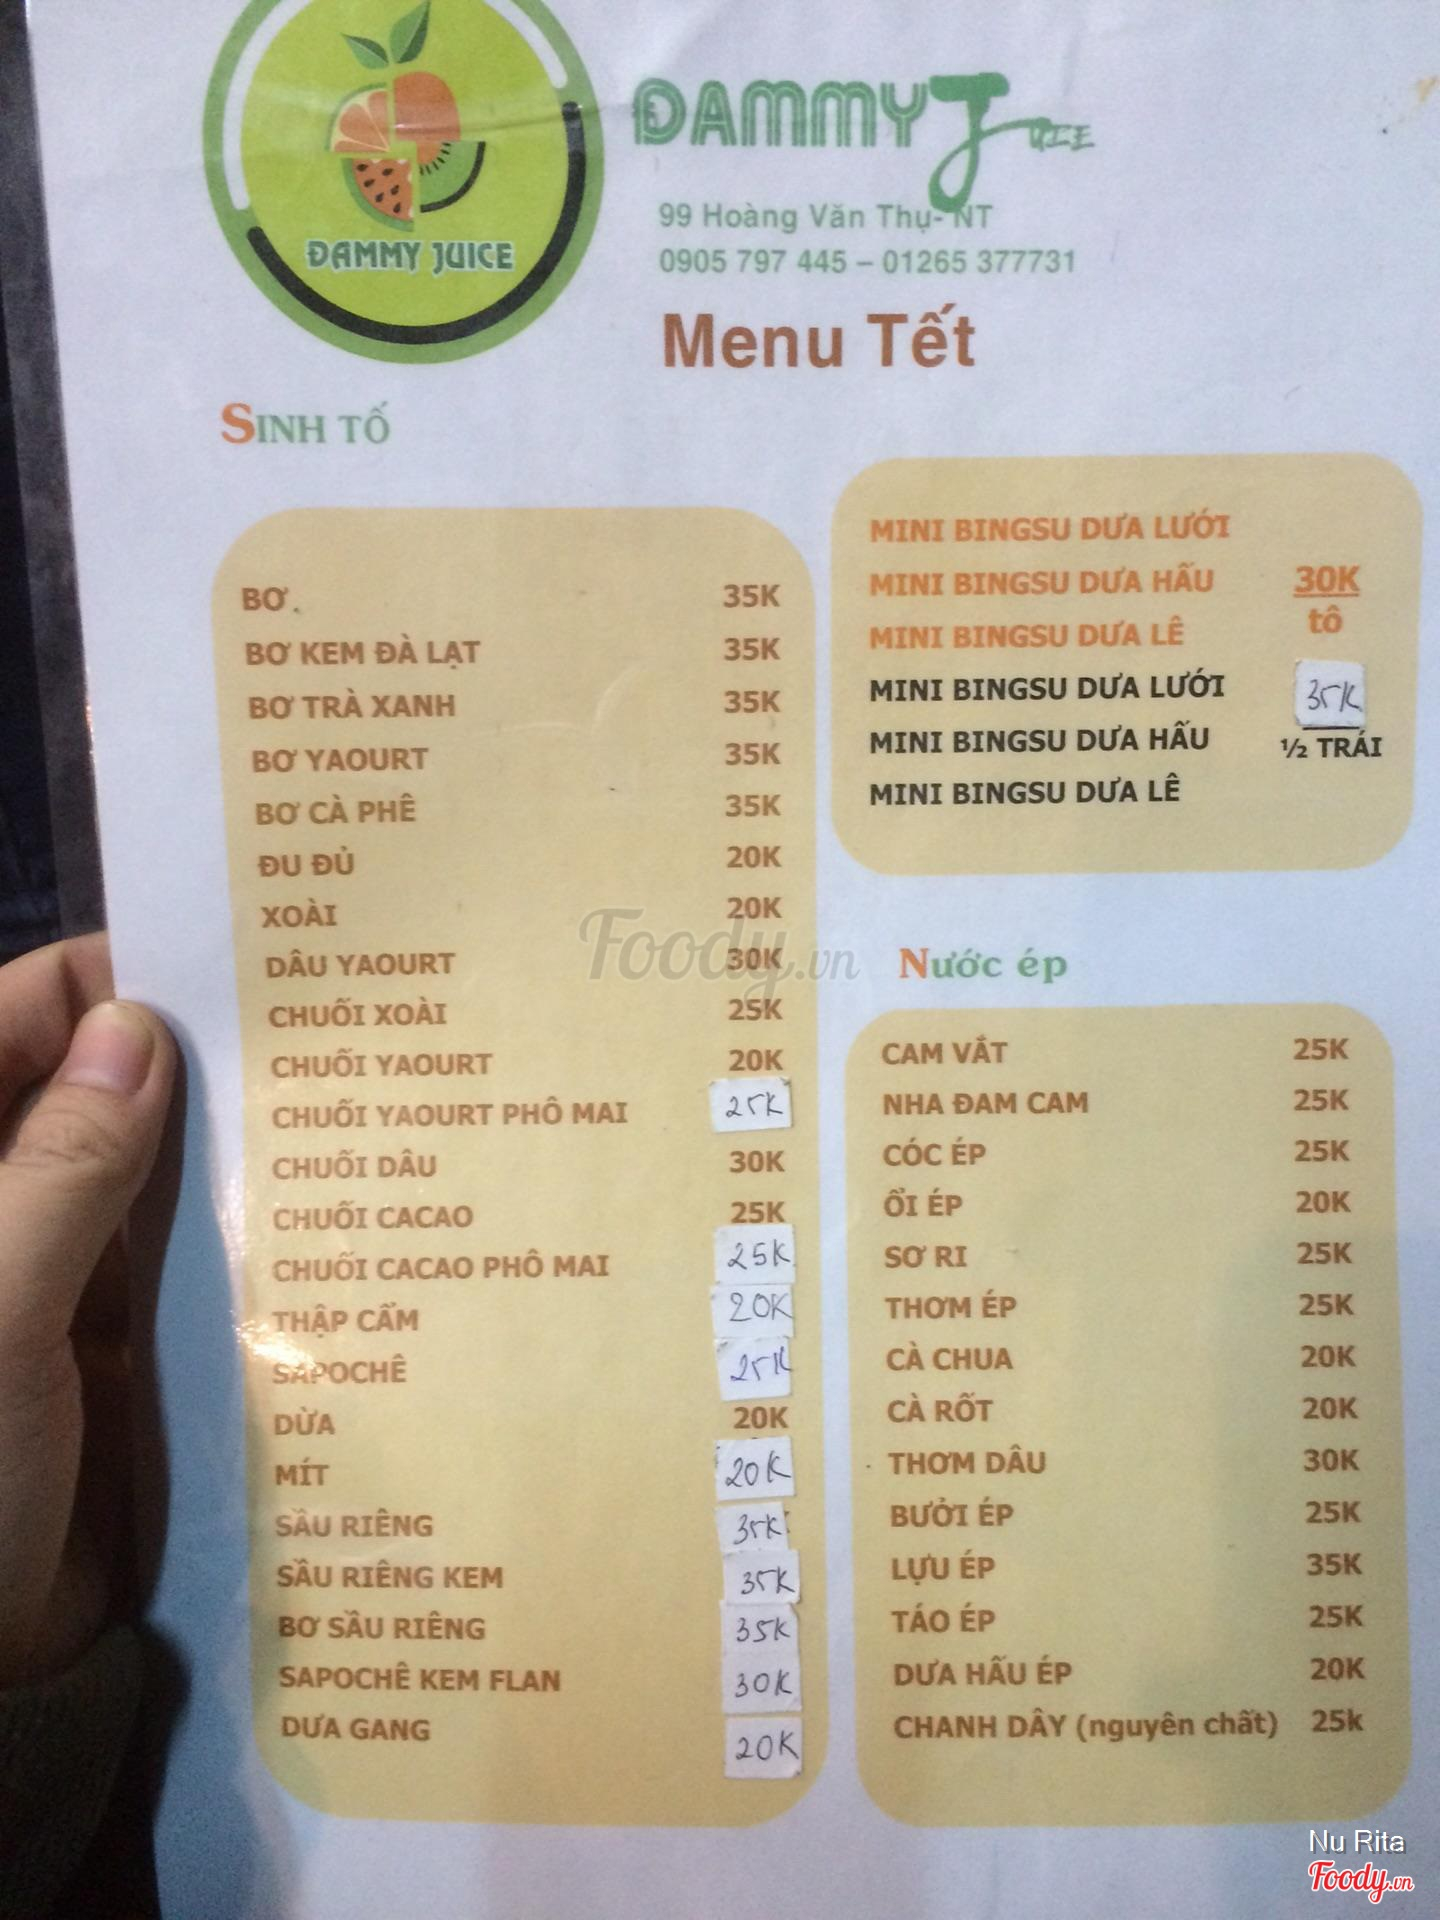 ĐAMMY JUICE
ĐAMMY JUICE
99 Hoàng Văn Thụ- NT
0905 797 445 – 01265 377731
Menu Tết
SINH TỐ
BƠ 35K
BƠ KEM ĐÀ LẠT 35K
BƠ TRÀ XANH 35K
BƠ YAOURT 35K
BƠ CÀ PHÊ 35K
ĐU ĐỦ 20K
XOÀI 20K
DÂU YAOURT 30K
CHUỐI XOÀI 25K
CHUỐI YAOURT 20K
CHUỐI YAOURT PHÔ MAI 25K
CHUỐI DÂU 30K
CHUỐI CACAO 25K
CHUỐI CACAO PHÔ MAI 25K
THẬP CẨM 20K
SAPOCHÊ 25K
DỪA 20K
MÍT 20K
SẦU RIÊNG 35K
SẦU RIÊNG KEM 35K
BƠ SẦU RIÊNG 35K
SAPOCHÊ KEM FLAN 30K
DƯA GANG 20K
MINI BINGSU DƯA LƯỚI
MINI BINGSU DƯA HẤU 30K
MINI BINGSU DƯA LÊ tô
MINI BINGSU DƯA LƯỚI 35K
MINI BINGSU DƯA HẤU ½ TRÁI
MINI BINGSU DƯA LÊ
Nước ép
CAM VẮT 25K
NHA ĐAM CAM 25K
CÓC ÉP 25K
ỔI ÉP 20K
SƠ RI 25K
THƠM ÉP 25K
CÀ CHUA 20K
CÀ RỐT 20K
THƠM DÂU 30K
BƯỞI ÉP 25K
LỰU ÉP 35K
TÁO ÉP 25K
DƯA HẤU ÉP 20K
CHANH DÂY (nguyên chất) 25k
Foody.vn
Nu Rita
Foody.vn